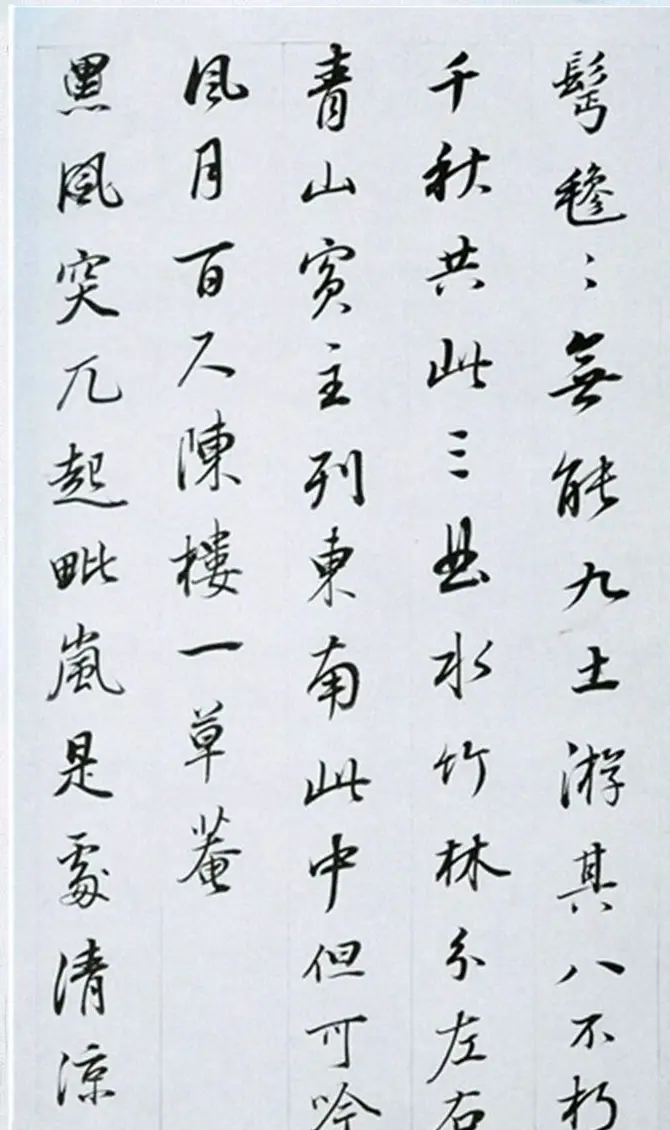 鬢毿〻無能九土游其八不朽
千秋共此三曲水竹林分左右
青山賓主列東南此中但可吟
風月百尺陳樓一草菴
黑風突兀起毗嵐是處清涼